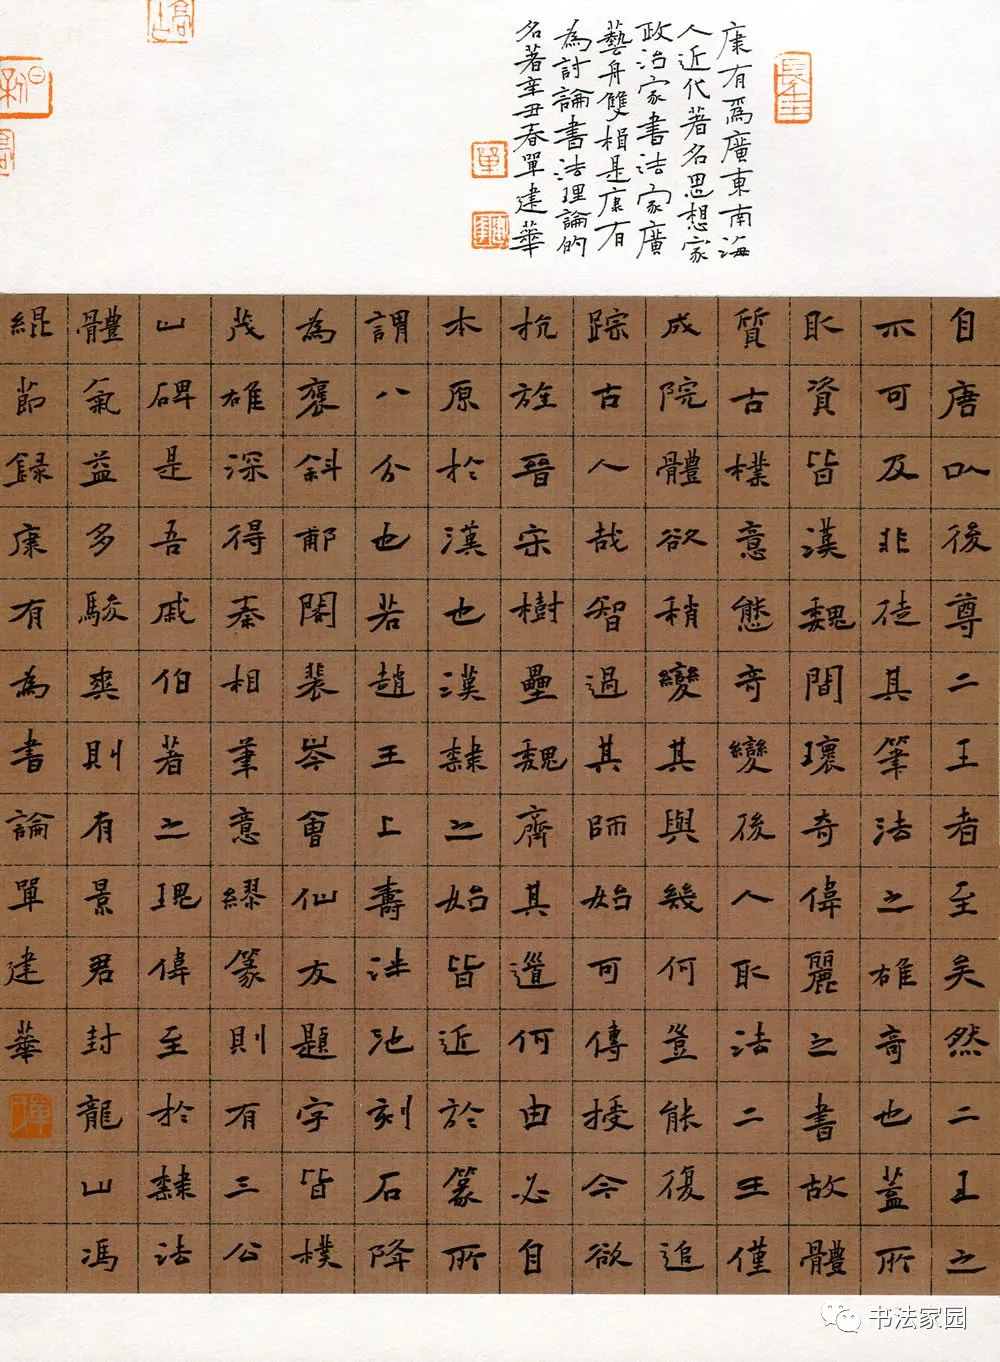 康有爲廣東南海
人近代著名思想家
政治家書法家廣
藝舟雙楫是康有
為討論書法理論的
名著辛丑春單建華
自唐以後尊二王者至矣然二王之
不可及非徒其筆法之雄奇也蓋所
取資皆漢魏間瓌奇偉麗之書故體
質古樸意態奇變後人取法二王僅
成院體欲稍變其與幾何豈能復追
踪古人哉智過其師始可傳授今欲
抗旌晉宋樹壘魏齊其道何由必自
本原於漢也漢隸之始皆近於篆所
謂八分也若趙王上壽泮池刻石降
為褒斜郙閣裴岑會仙友題字皆樸
茂雄深得秦相筆意繆篆則有三公
山碑是吾戚伯著之瑰偉至於隸法
體氣益多駿爽則有景君封龍山馮
緄節録康有為書論單建華
單
長生
書法家园